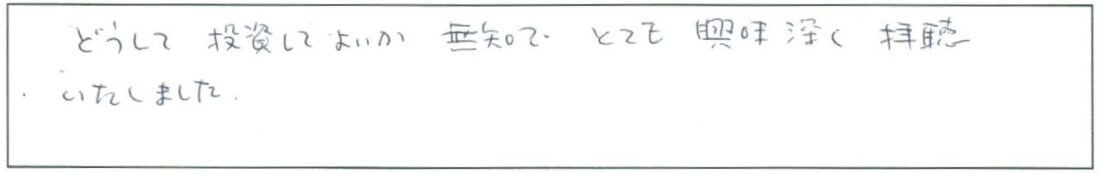 どうして 投資してよいか 無知で とても 興味深く 拝聴
いたしました.